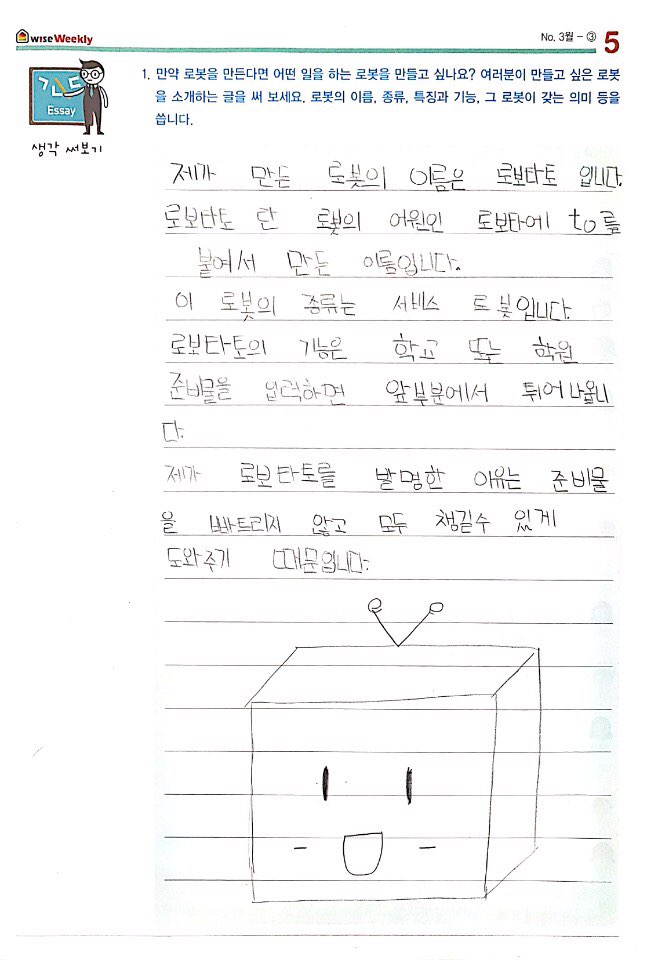 wiseWeekly
No. 3월 - ③ 5
간드
Essay
생각 써보기
1. 만약 로봇을 만든다면 어떤 일을 하는 로봇을 만들고 싶나요? 여러분이 만들고 싶은 로봇
을 소개하는 글을 써 보세요. 로봇의 이름, 종류, 특징과 기능, 그 로봇이 갖는 의미 등을
씁니다.
제가 만든 로봇의 이름은 로보타토 입니다.
로보타토 란 로봇의 어원인 로보타에 to를
붙여서 만든 이름입니다.
이 로봇의 종류는 서비스 로봇입니다.
로보타토의 기능은 학교 또는 학원
준비물을 입력하면 앞부분에서 튀어나옵니
다.
제가 로보타토를 발명한 이유는 준비물
을 빠트리지 않고 모두 챙길수 있게
도와주기 때문입니다.